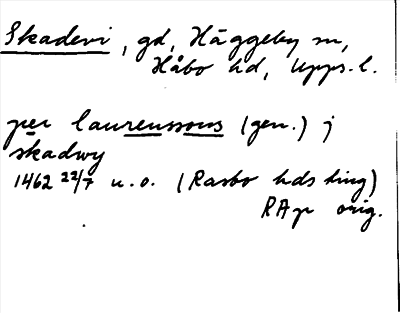 Skadevi, gd, Häggeby sn,
Håbo hd, Upps. l.
per laurenssons (gen.) j
skadwy
1462 22/7 u.o. (Rasbo hds ting)
RAp orig.